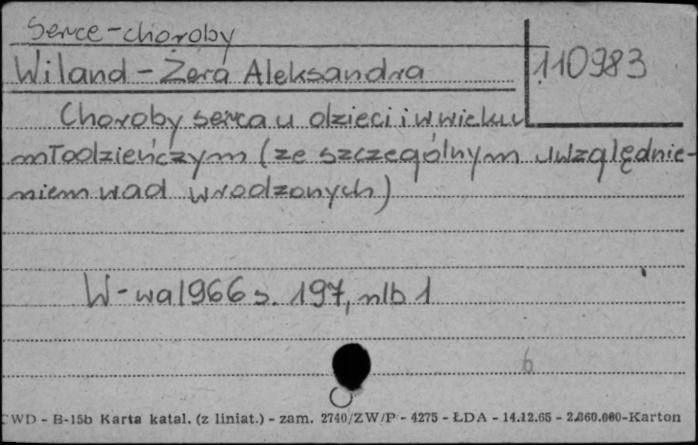 Serce - choroby
Wiland - Żera Aleksandra
110983
Choroby serca u dzieci i w wieku
młodzieńczym (ze szczególnym uwzględnie-
niem wad wrodzonych)
W-wa 1966 s. 197, nlb 1
6
CWD - B-15b Karta katal. (z liniat.) - zam. 2740/ZW/P - 4275 - ŁDA - 14.12.65 - 2.860.000-Karton